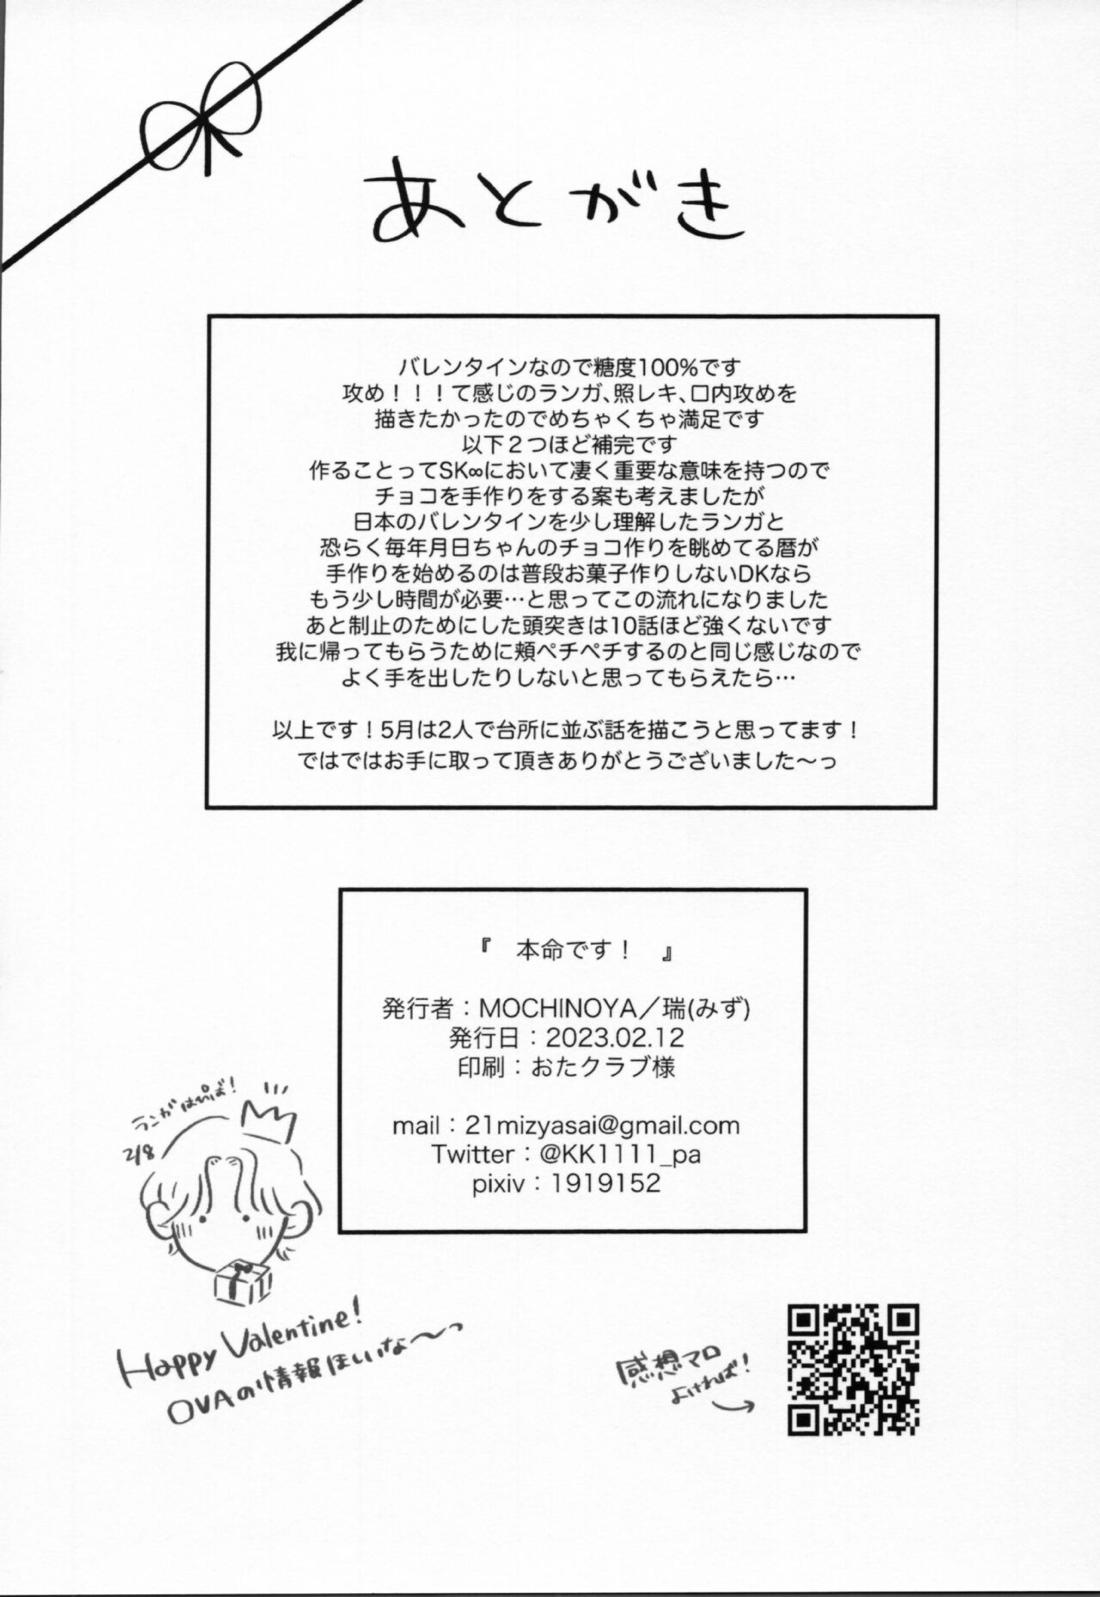 あとがき
バレンタインなので糖度100%です
攻め！！！て感じのランガ、照レキ、口内攻めを
描きたかったのでめちゃくちゃ満足です
以下２つほど補完です
作ることってSK∞において凄く重要な意味を持つので
チョコを手作りをする案も考えましたが
日本のバレンタインを少し理解したランガと
恐らく毎年月日ちゃんのチョコ作りを眺めてる暦が
手作りを始めるのは普段お菓子作りしないDKなら
もう少し時間が必要…と思ってこの流れになりました
あと制止のためにした頭突きは10話ほど強くないです
我に帰ってもらうために頬ペチペチするのと同じ感じなので
よく手を出したりしないと思ってもらえたら…
以上です！5月は2人で台所に並ぶ話を描こうと思ってます！
ではではお手に取って頂きありがとうございました〜っ
『　本命です！　』
発行者：MOCHINOYA／瑞(みず)
発行日：2023.02.12
印刷：おたクラブ様
mail：21mizyasai@gmail.com
Twitter：@KK1111_pa
pixiv：1919152
ランガはぴば！
2/8
Happy Valentine!
OVAの情報ほしいな〜っ
感想マロ
よければ！